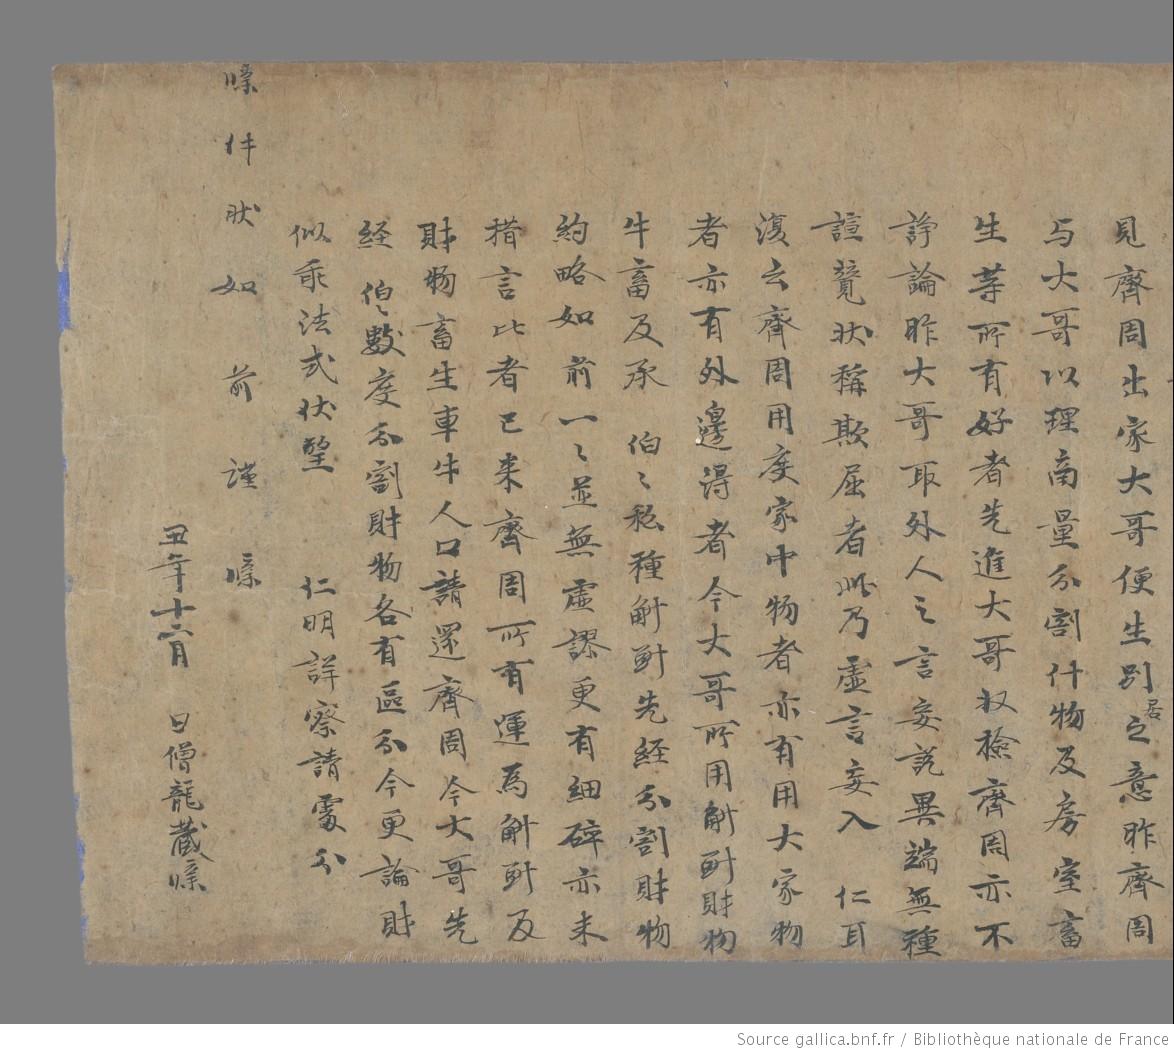 見齊周出家大哥便生別居之意昨齊周
与大哥以理商量分割什物及房室畜
生等所有好者先進大哥收檢齊周亦不
諍論昨大哥取外人之言妄說異端無種
諠競狀稱欺屈者此乃虛言妄入 仁耳
復云齊周用度家中物者亦有用大家物
者亦有外邊得者今大哥所用斛㪷財物
牛畜及承 伯〻私種斛㪷先經分割財物
約略如前一〻並無虛謬更有細碎亦未
措言比者已來齊周所有運爲斛㪷及
財物畜生車牛人口請還齊周今大哥先
經 伯〻數度分割財物各有區分今更論財
似乖法式伏望 仁明詳察請處分
牒件狀如前謹牒
丑年十二月 日僧龍藏牒
Source gallica.bnf.fr / Bibliothèque nationale de France